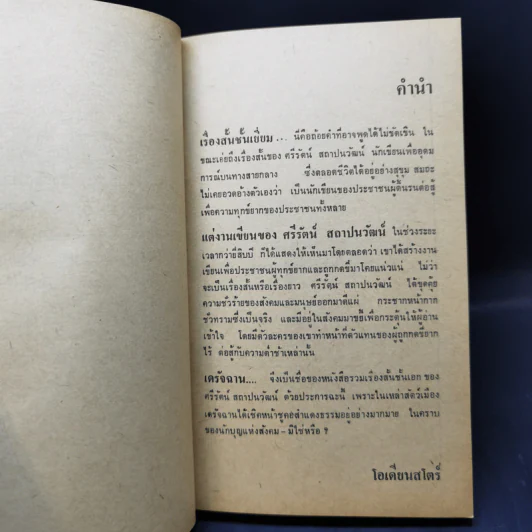 คำนำ
เรื่องสั้นชั้นเยี่ยม... นี่คือถ้อยคำที่อาจพูดได้ไม่ขัดเขิน ใน
ขณะเอ่ยถึงเรื่องสั้นของ ศรีรัตน์ สถาปนวัฒน์ นักเขียนเพื่ออุดม
การณ์บนทางสายกลาง ซึ่งตลอดชีวิตได้อยู่อย่างสุขุม สมถะ
ไม่เคยอวดอ้างตัวเองว่า เป็นนักเขียนของประชาชนผู้ดิ้นรนต่อสู้
เพื่อความทุกข์ยากของประชาชนทั้งหลาย
แต่งานเขียนของ ศรีรัตน์ สถาปนวัฒน์ ในช่วงระยะ
เวลากว่ายี่สิบปี ก็ได้แสดงให้เห็นมาโดยตลอดว่า เขาได้สร้างงาน
เขียนเพื่อประชาชนผู้ทุกข์ยากและถูกกดขี่มาโดยแน่วแน่ ไม่ว่า
จะเป็นเรื่องสั้นหรือเรื่องยาว ศรีรัตน์ สถาปนวัฒน์ ได้ขุดคุ้ย
ความชั่วร้ายของสังคมและมนุษย์ออกมาตีแผ่ กระชากหน้ากาก
ชั่วทรามซึ่งเป็นจริง และมีอยู่ในสังคมมาขยี้เพื่อกระตุ้นให้ผู้อ่าน
เข้าใจ โดยมีตัวละครของเขาทำหน้าที่ตัวแทนของผู้ถูกกดขี่ยาก
ไร้ ต่อสู้กับความต่ำช้าเหล่านั้น
เดรัจฉาน.... จึงเป็นชื่อของหนังสือรวมเรื่องสั้นชั้นเอก ของ
ศรีรัตน์ สถาปนวัฒน์ ด้วยประการฉะนี้ เพราะในเหล่าสัตว์เมือง
เดรัจฉานได้เชิดหน้าชูคอสำแดงธรรมอยู่อย่างมากมาย ในคราบ
ของนักบุญแห่งสังคม – มิใช่หรือ ?
โอเดียนสโตร์